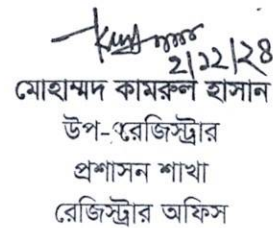 ২/১২/২৪
মোহাম্মদ কামরুল হাসান
উপ-রেজিস্ট্রার
প্রশাসন শাখা
রেজিস্ট্রার অফিস